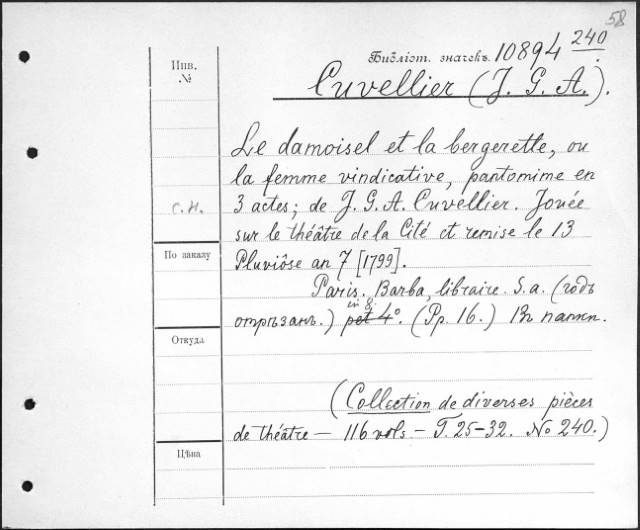 58
Библіот. значекъ. 10894 240
Cuvellier (J. G. A.).
Инв.
№
Le damoisel et la bergerette, ou
la femme vindicative, pantomime en
3 actes; de J. G. A. Cuvellier. Jouée
С.Н.
sur le théâtre de la Cité et remise le 13
По заказу
Pluviôse an 7 [1799].
Paris. Barba, libraire. S.a. (годъ
in 8.
отрѣзанъ.) pet 4º. (Pp. 16.) Въ папкѣ.
Откуда
(Collection de diverses pièces
de théâtre — 116 vols — T. 25-32. No 240.)
Цѣна